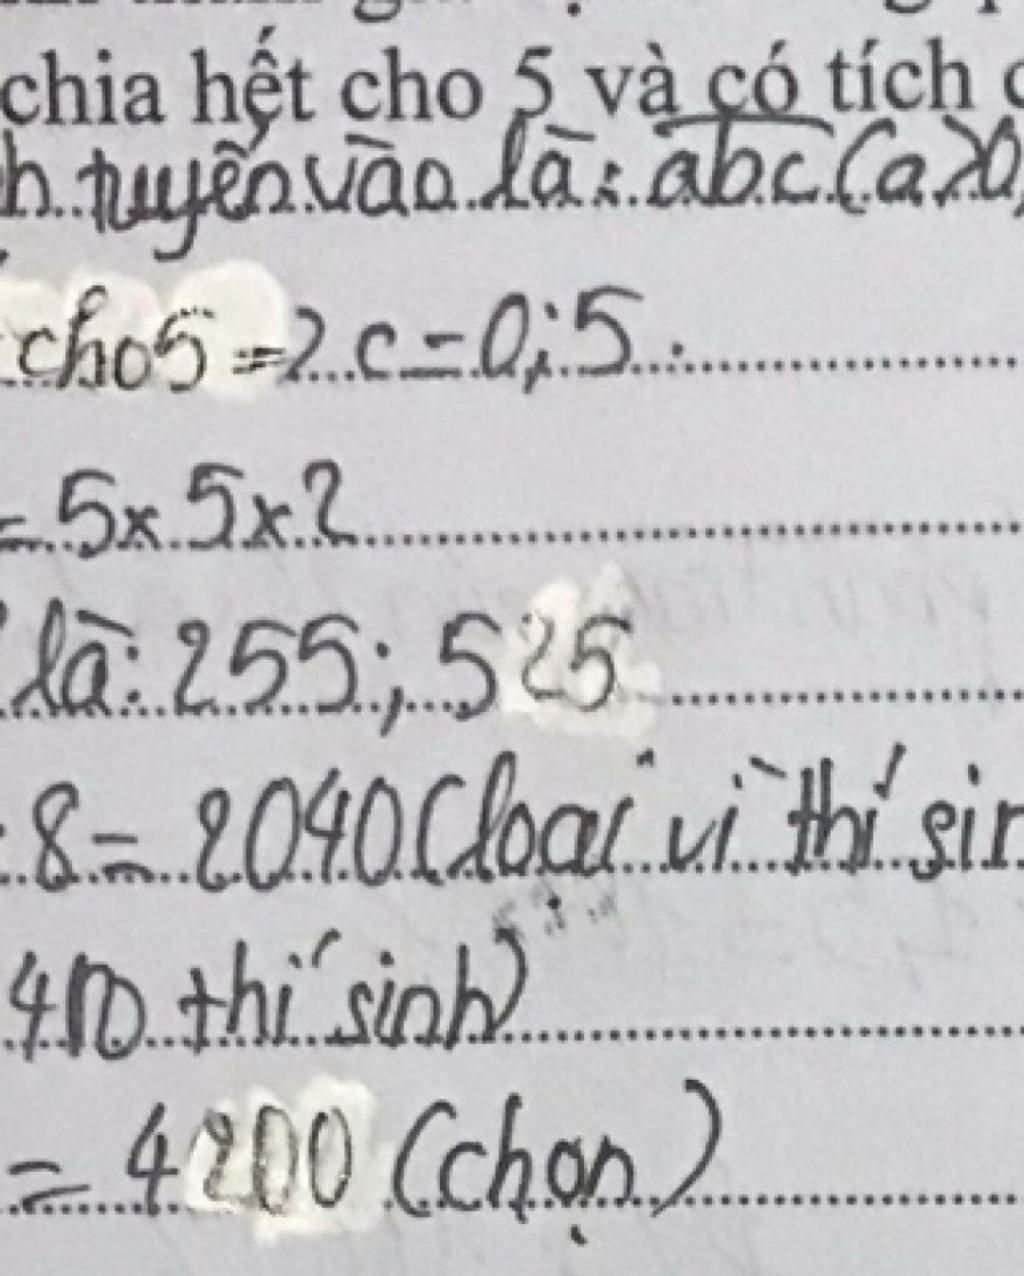 chia hết cho 5 và có tích
h tuyển vào là: abc (a>0,
cho 5 => c = 0; 5.
= 5 x 5 x 2
là: 255; 525
8 = 2040 (loại vì thí sin
thí sinh)
= 4200 (chọn)